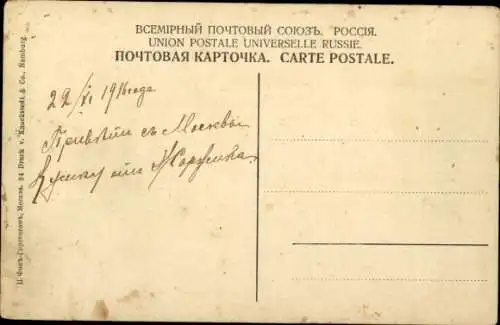 ВСЕМІРНЫЙ ПОЧТОВЫЙ СОЮЗЪ. РОССІЯ.
UNION POSTALE UNIVERSELLE RUSSIE.
ПОЧТОВАЯ КАРТОЧКА. CARTE POSTALE.
22/VI 1916 года
Привѣтъ съ Москвы
отъ Жоржика.
П. Фонъ-Гиргенсонъ, Москва. 24 Druck v. Knackstedt & Co., Hamburg